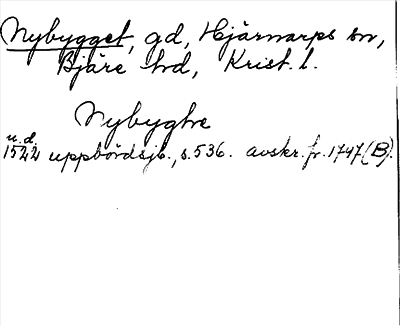 Nybygget, gd, Hjärnarps sn,
Bjäre hd, Krist. l.
Nybygtre
u.d.
1522 uppbördsjb., s. 536. avskr. fr. 1747 (B).